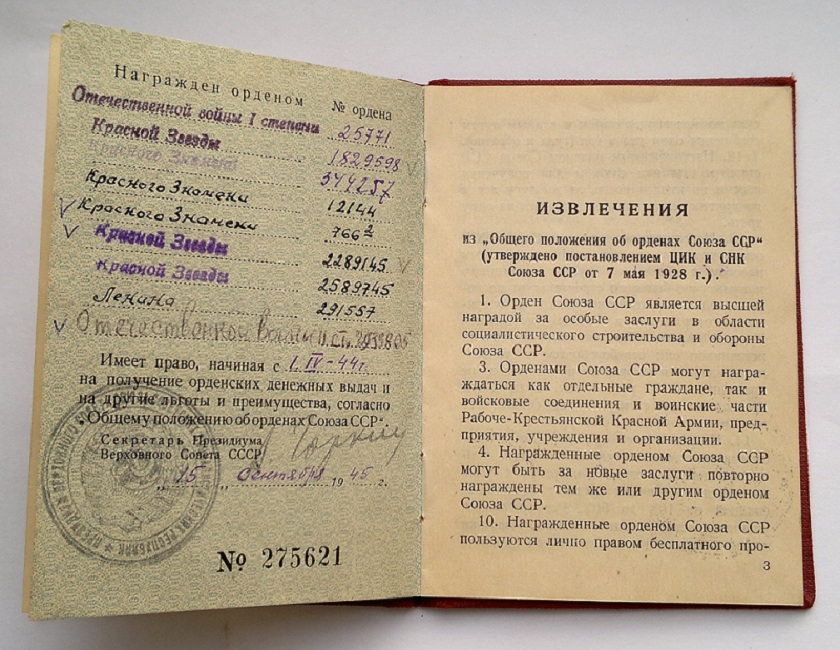 Награжден орденом
№ ордена
Отечественной войны I степени 25771
Красной Звезды 1829598
Красного Знамени 344257
Красного Знамени 12144
Красного Знамени 766 2
Красной Звезды 2289145
Красной Звезды 2589745
Ленина 291557
Отечественной Войны II ст.
Имеет право, начиная с 1.IV-44г.
на получение орденских денежных выдач и
на другие льготы и преимущества, согласно
„Общему положению об орденах Союза ССР".
Секретарь Президиума
Верховного Совета СССР
Горкин
„15„ Сентября 1945 г.
№ 275621
ИЗВЛЕЧЕНИЯ
из „Общего положения об орденах Союза ССР"
(утверждено постановлением ЦИК и СНК
Союза ССР от 7 мая 1928 г.).
1. Орден Союза ССР является высшей
наградой за особые заслуги в области
социалистического строительства и обороны
Союза ССР.
3. Орденами Союза ССР могут награ-
ждаться как отдельные граждане, так и
войсковые соединения и воинские части
Рабоче-Крестьянской Красной Армии, пред-
приятия, учреждения и организации.
4. Награжденные орденом Союза ССР
могут быть за новые заслуги повторно
награждены тем же или другим орденом
Союза ССР.
10. Награжденные орденом Союза ССР
пользуются лично правом бесплатного про-
3